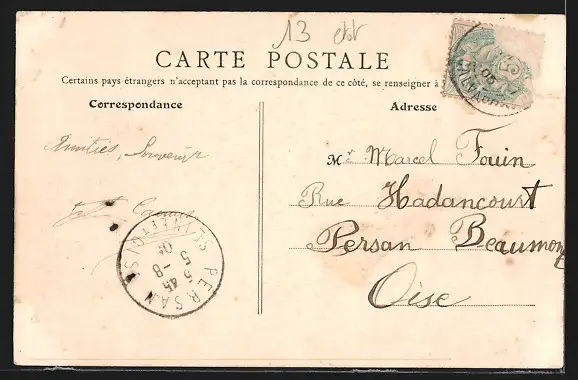 13 ebt
CARTE POSTALE
Certains pays étrangers n'acceptant pas la correspondance de ce côté, se renseigner à
Correspondance
Adresse
Amitiés, Souvenir
Mr Marcel Fouin
Rue Hadancourt
Persan Beaumont
Oise
PERSAN
5 45
5 -8
05